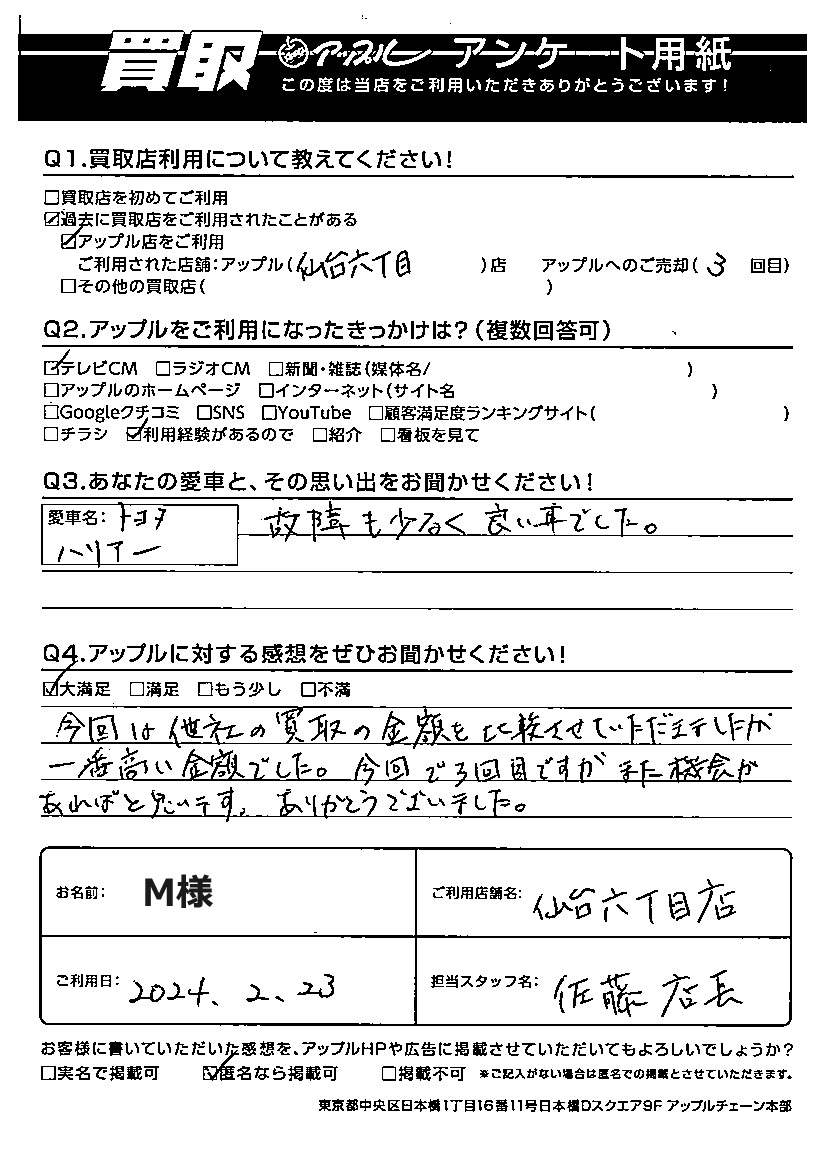 買取 アップル アンケート用紙
この度は当店をご利用いただきありがとうございます!
Q1.買取店利用について教えてください!
□買取店を初めてご利用
☑過去に買取店をご利用されたことがある
☑アップル店をご利用
ご利用された店舗:アップル(仙台六丁目)店 アップルへのご売却(3回目)
□その他の買取店( )
Q2.アップルをご利用になったきっかけは?(複数回答可)
☑テレビCM □ラジオCM □新聞・雑誌(媒体名/ )
□アップルのホームページ □インターネット(サイト名 )
□Googleクチコミ □SNS □YouTube □顧客満足度ランキングサイト( )
□チラシ ☑利用経験があるので □紹介 □看板を見て
Q3.あなたの愛車と、その思い出をお聞かせください!
愛車名:トヨタ
ハリアー
故障も少なく良い車でした。
Q4.アップルに対する感想をぜひお聞かせください!
☑大満足 □満足 □もう少し □不満
今回は他社の買取の金額を比較させていただきましたが
一番高い金額でした。今回で3回目ですがまた機会が
あればと思います。ありがとうございました。
お名前: M様
ご利用店舗名: 仙台六丁目店
ご利用日: 2024.2.23
担当スタッフ名: 佐藤店長
お客様に書いていただいた感想を、アップルHPや広告に掲載させていただいてもよろしいでしょうか?
□実名で掲載可 ☑匿名なら掲載可 □掲載不可 ※ご記入がない場合は匿名での掲載とさせていただきます。
東京都中央区日本橋1丁目16番11号日本橋Dスクエア9F アップルチェーン本部